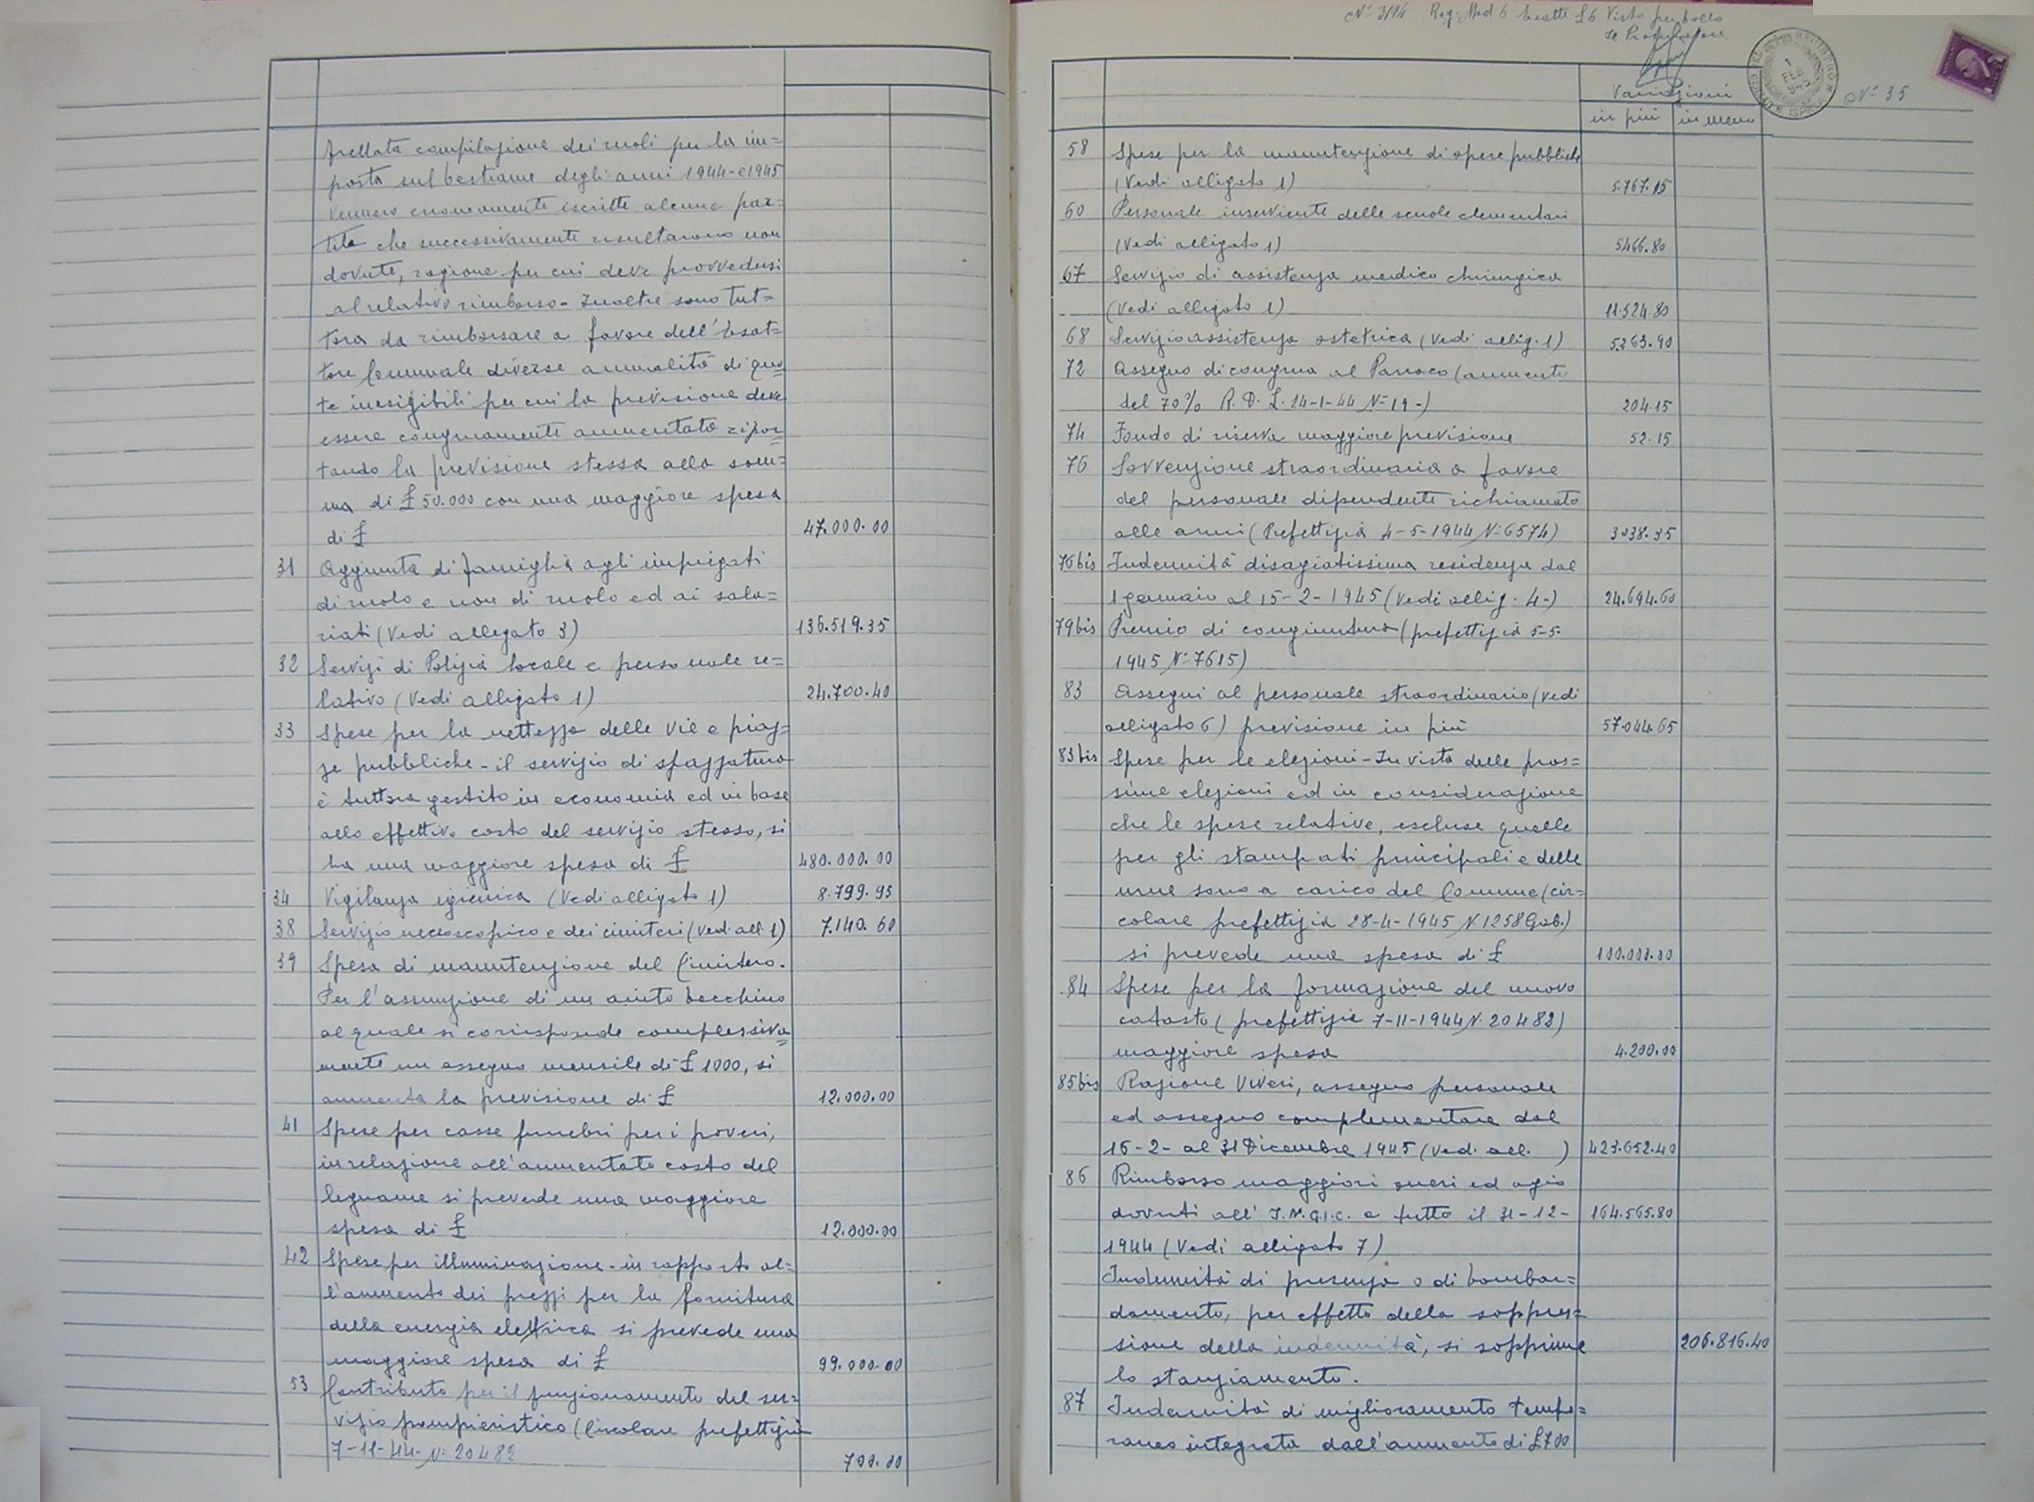 frettata compilazione dei ruoli per la im=
posta sul bestiame degli anni 1944-e1945
vennero erroneamente iscritte alcune par=
tite che successivamente risultarono non
dovute, ragione per cui deve provvedersi
al relativo rimborso - Inoltre sono tut=
tora da rimborsare a favore dell'Esat=
tore Comunale diverse annualità di quo=
te inesigibili per cui la previsione deve
essere congruamente aumentata ripor=
tando la previsione stessa alla som=
ma di £ 50.000 con una maggiore spesa
di £ 47.000.00
31 Aggiunta di famiglia agli impiegati
di ruolo e non di ruolo ed ai sala=
riati (Vedi allegato 3) 136.519.35
32 Servizi di Polizia locale e personale re=
lativo (Vedi alligato 1) 24.700.40
33 Spese per la nettezza delle vie e piaz=
ze pubbliche - il servizio di spazzatura
è tuttora gestito in economia ed in base
allo effettivo costo del servizio stesso, si
ha una maggiore spesa di £ 480.000.00
34 Vigilanza igienica (Vedi alligato 1) 8.799.95
38 Servizio necroscopico e dei cimiteri (Vedi all. 1) 7.140.60
39 Spesa di manutenzione del Cimitero.
Per l'assunzione di un aiuto becchino
al quale si corrisponde complessiva=
mente un assegno mensile di £ 1000, si
aumenta la previsione di £ 12.000.00
41 Spese per casse funebri per i poveri,
in relazione all'aumentato costo del
legname si prevede una maggiore
spesa di £ 12.000.00
42 Spese per illuminazione - in rapporto al=
l'aumento dei prezzi per la fornitura
della energia elettrica si prevede una
maggiore spesa di £ 99.000.00
53 Contributo per il funzionamento del ser=
vizio pompieristico (Circolare prefettizia
7-11-44- N. 20482 700.00
N° 3194 Reg. Mod 6 Esatte £ 6 Visto per bollo
Il Procuratore
N° 35
Variazioni
in più in meno
58 Spese per la manutenzione di opere pubbliche
(Vedi alligato 1) 5.767.15
60 Personale inserviente delle scuole elementari
(Vedi alligato 1) 5466.80
67 Servizio di assistenza medico chirurgica
(Vedi alligato 1) 11.524.80
68 Servizio assistenza ostetrica (Vedi allig. 1) 5263.90
72 Assegno di congrua al Parroco (aumento
del 70% R.D.L. 14-1-44 N° 19-) 204.15
74 Fondo di riserva maggiore previsione 52.15
76 Sovvenzione straordinaria a favore
del personale dipendente richiamato
alle armi (Prefettizia 4-5-1944 N° 6574) 3038.35
76 bis Indennità disagiatissima residenza dal
1 gennaio al 15-2-1945 (Vedi allig. 4-) 24.694.60
79 bis Premio di congiuntura (prefettizia 5-5-
1945 N° 7615)
83 Assegni al personale straordinario (vedi
alligato 6) previsione in più 57.044.65
83 bis Spese per le elezioni - In vista delle pros=
sime elezioni ed in considerazione
che le spese relative, escluse quelle
per gli stampati principali e delle
urne sono a carico del Comune (cir=
colare prefettizia 28-4-1945 N. 1258 Gab.)
si prevede una spesa di £ 100.000.00
84 Spese per la formazione del nuovo
catasto (prefettizia 7-11-1944 N. 20482)
maggiore spesa 4.200.00
85 bis Razione Viveri, assegno personale
ed assegno complementare dal
16-2- al 31 Dicembre 1945 (Ved. all. ) 423.652.40
86 Rimborso maggiori oneri ed agio
dovuti all'I.N.G.I.C. a tutto il 31-12- 164.565.80
1944 (Vedi alligato 7)
Indennità di presenza o di bombar=
damento, per effetto della soppres=
sione della indennità, si sopprime 206.816.40
lo stanziamento.
87 Indennità di miglioramento tempo=
raneo integrata dall'aumento di £ 700